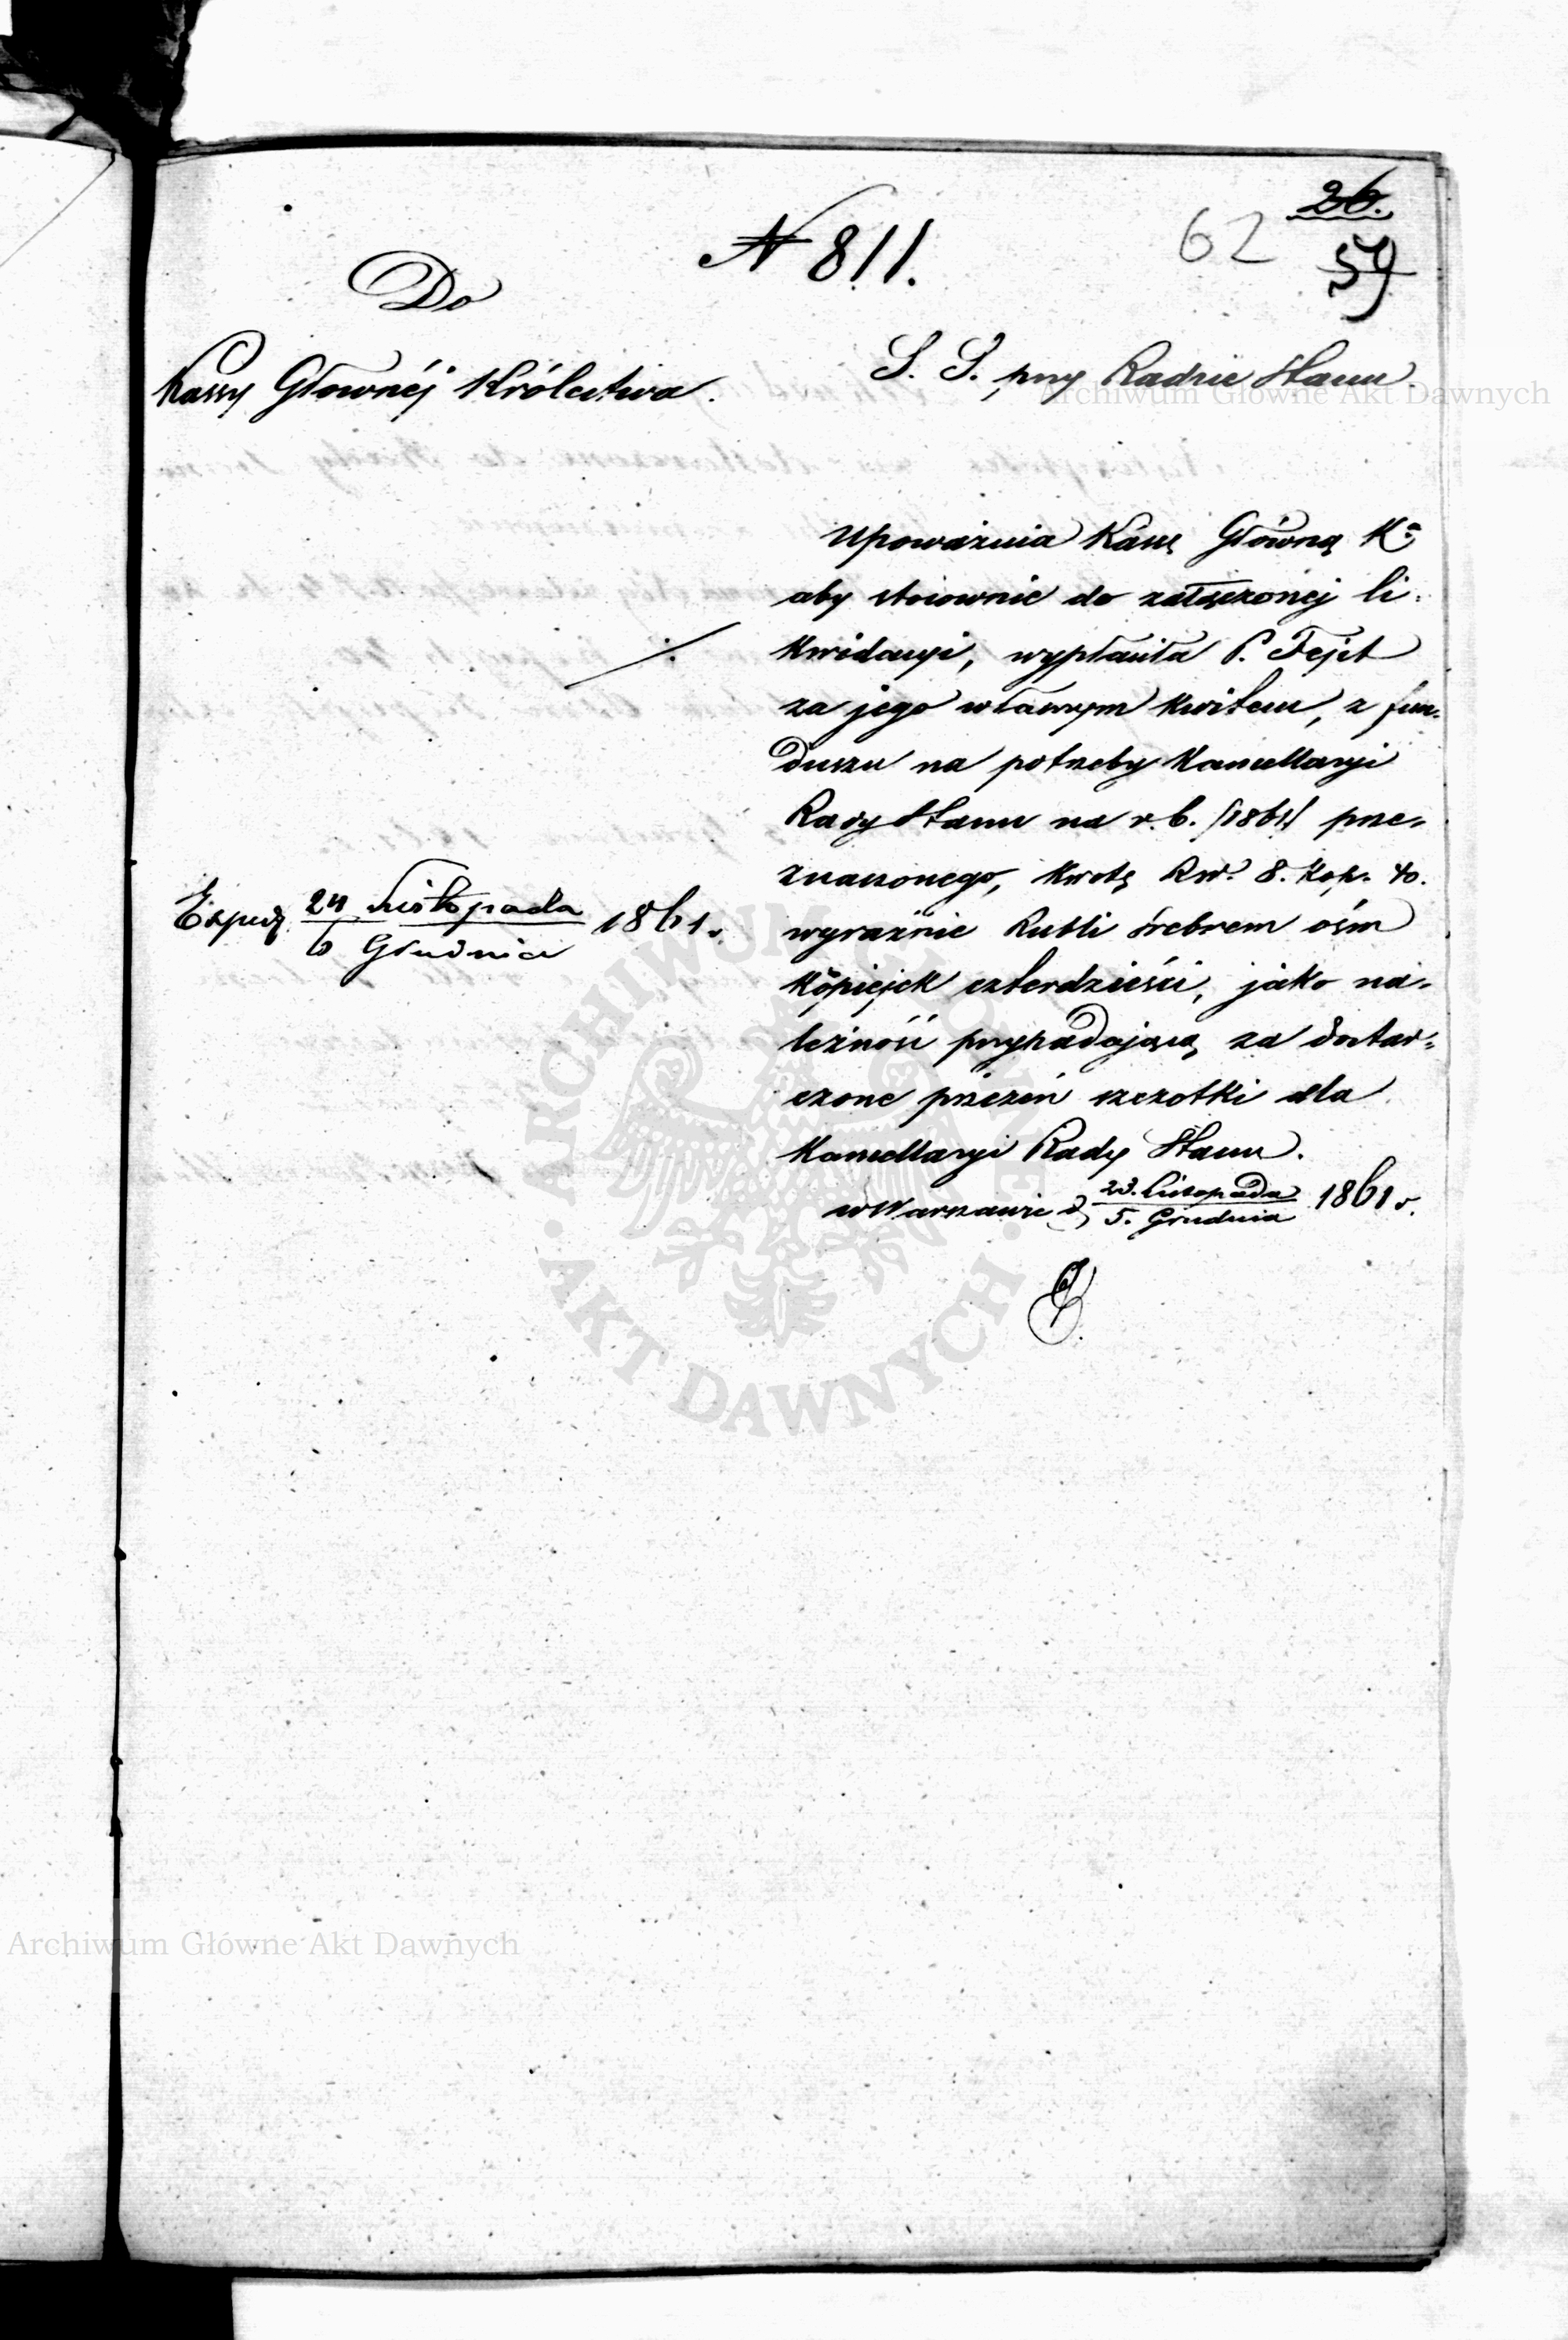 26.
62
59
N 811.
Do
Kassy Głównéj Królestwa.
S. S. przy Radzie Stanu.
Upoważnia Kassę Główną Kª
aby stosownie do załączonej li-
kwidacyi, wypłaciła P. Fejst
za jego własnym kwitem, z fun-
duszu na potrzeby Kancellaryi
Rady Stanu na r. b. /1861/ prze-
znaczonego, kwotę Rsr. 8. kop. 40.
wyraźnie Rubli srebrem ośm
kopiejek czterdzieści, jako na-
leżność przypadającą za dostar-
czone przezeń szczotki dla
Kancellaryi Rady Stanu.
w Warszawie d. 23. Listopada / 5. Grudnia 1861 r.
Exped. 24 Listopada / 6 Grudnia 1861 r.
Archiwum Główne Akt Dawnych
ARCHIWUM GŁÓWNE
· AKT DAWNYCH ·
Archiwum Główne Akt Dawnych